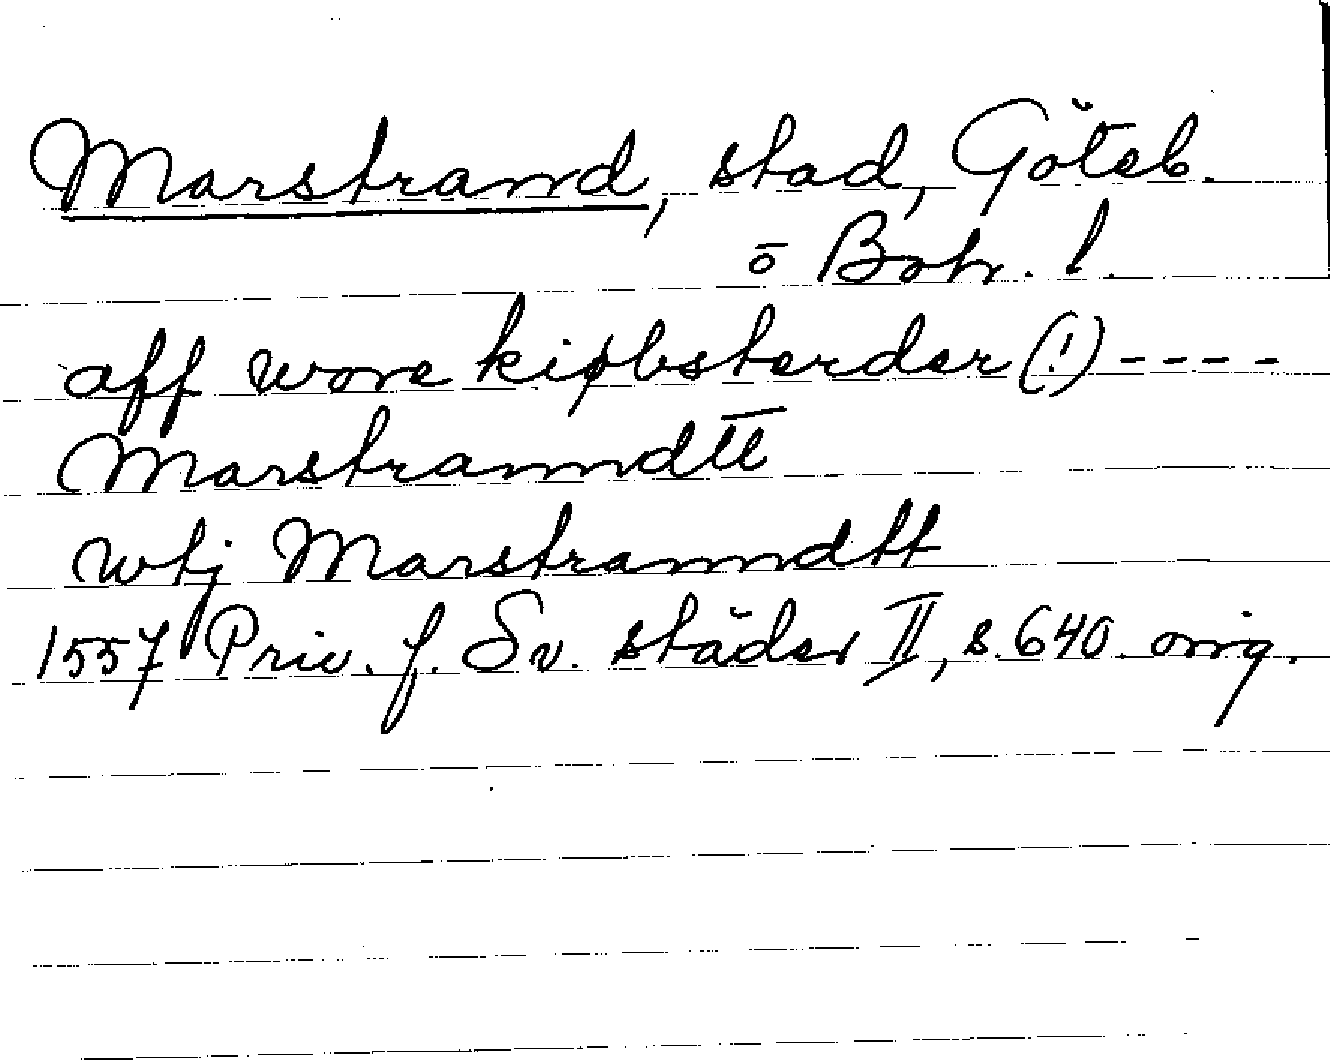 Marstrand, stad, Göteb.
o Boh. l.
aff wore kiøbsterder (!) ----
Marstranndtt
wtj Marstranndtt
1557 Priv. f. Sv. städer II, s. 640 orig.